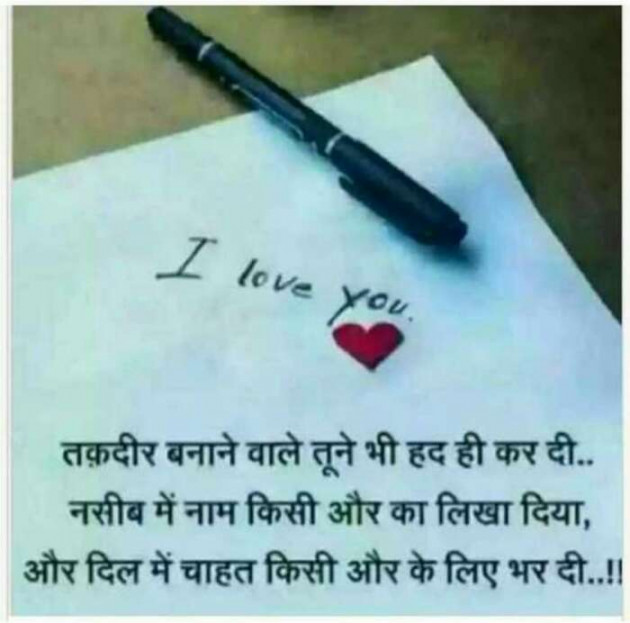 I love you.
तक़दीर बनाने वाले तूने भी हद ही कर दी..
नसीब में नाम किसी और का लिखा दिया,
और दिल में चाहत किसी और के लिए भर दी..!!